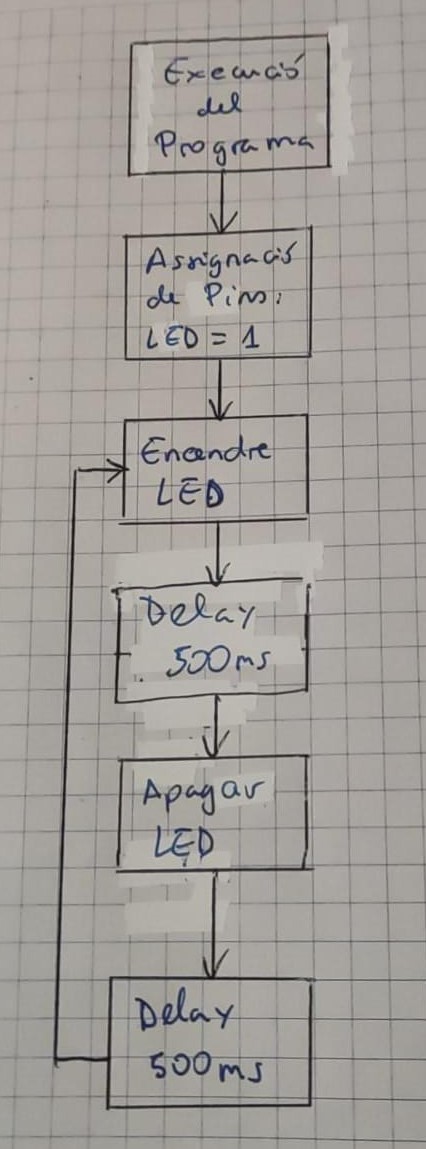 Execució
del
Programa
Assignació
de Pins:
LED = 1
Encendre
LED
Delay
500ms
Apagar
LED
Delay
500ms